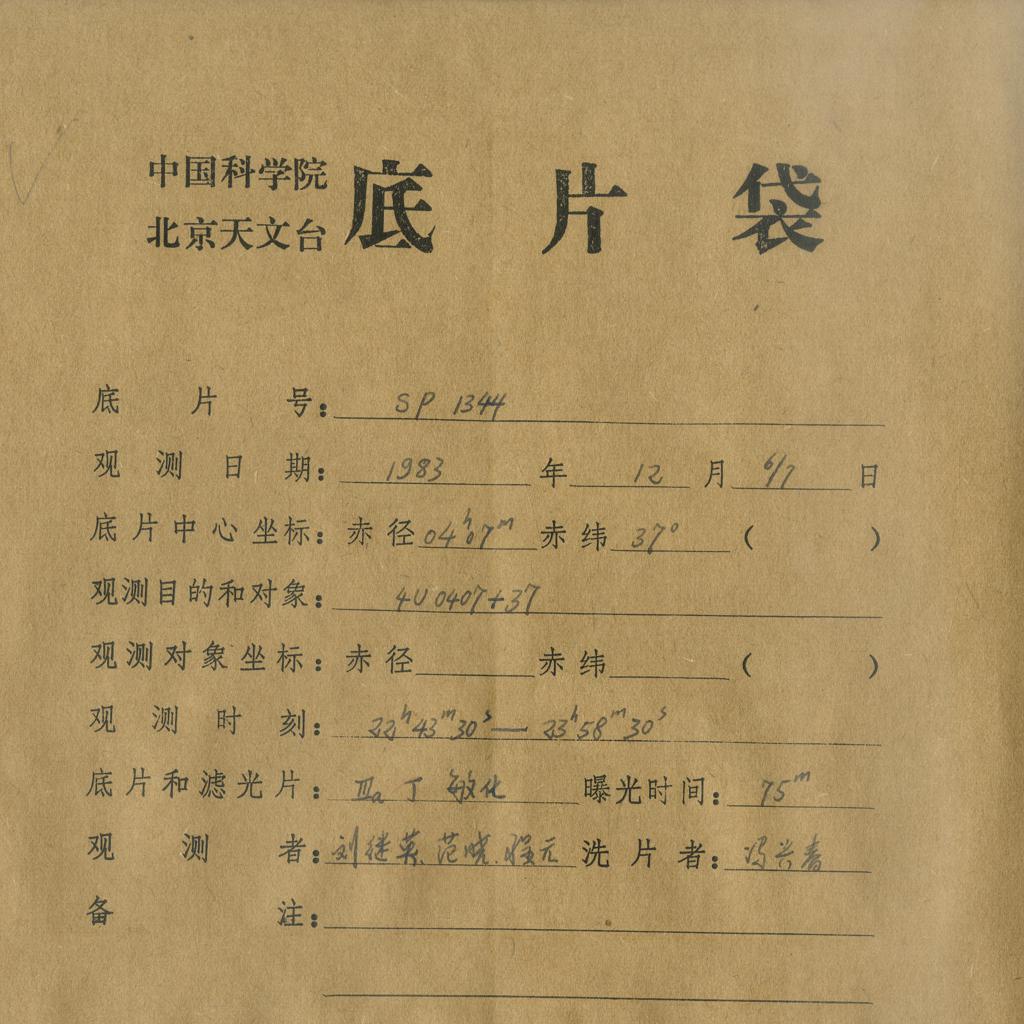 中国科学院
北京天文台
底片袋
底片号: SP 1344
观测日期: 1983 年 12 月 6/7 日
底片中心坐标: 赤径 04ʰ07ᵐ 赤纬 37° ( )
观测目的和对象: 4U0407+37
观测对象坐标: 赤径 赤纬 ( )
观测时刻: 22ʰ43ᵐ30ˢ — 23ʰ58ᵐ30ˢ
底片和滤光片: Ⅲa J 敏化 曝光时间: 75ᵐ
观测者: 刘继英. 范晓. 程元 洗片者: 冯兴春
备注: